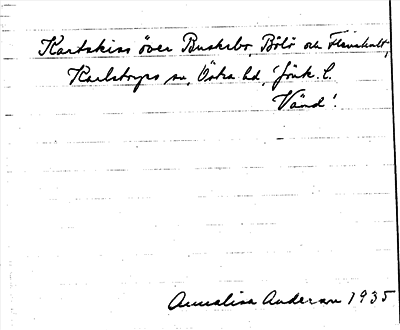 Kartskiss över Buskebo, Bölö och Flårahult,
Karlstorps sn, Östra hd, Jönk. l.
Vänd!
Annalisa Anderson 1935